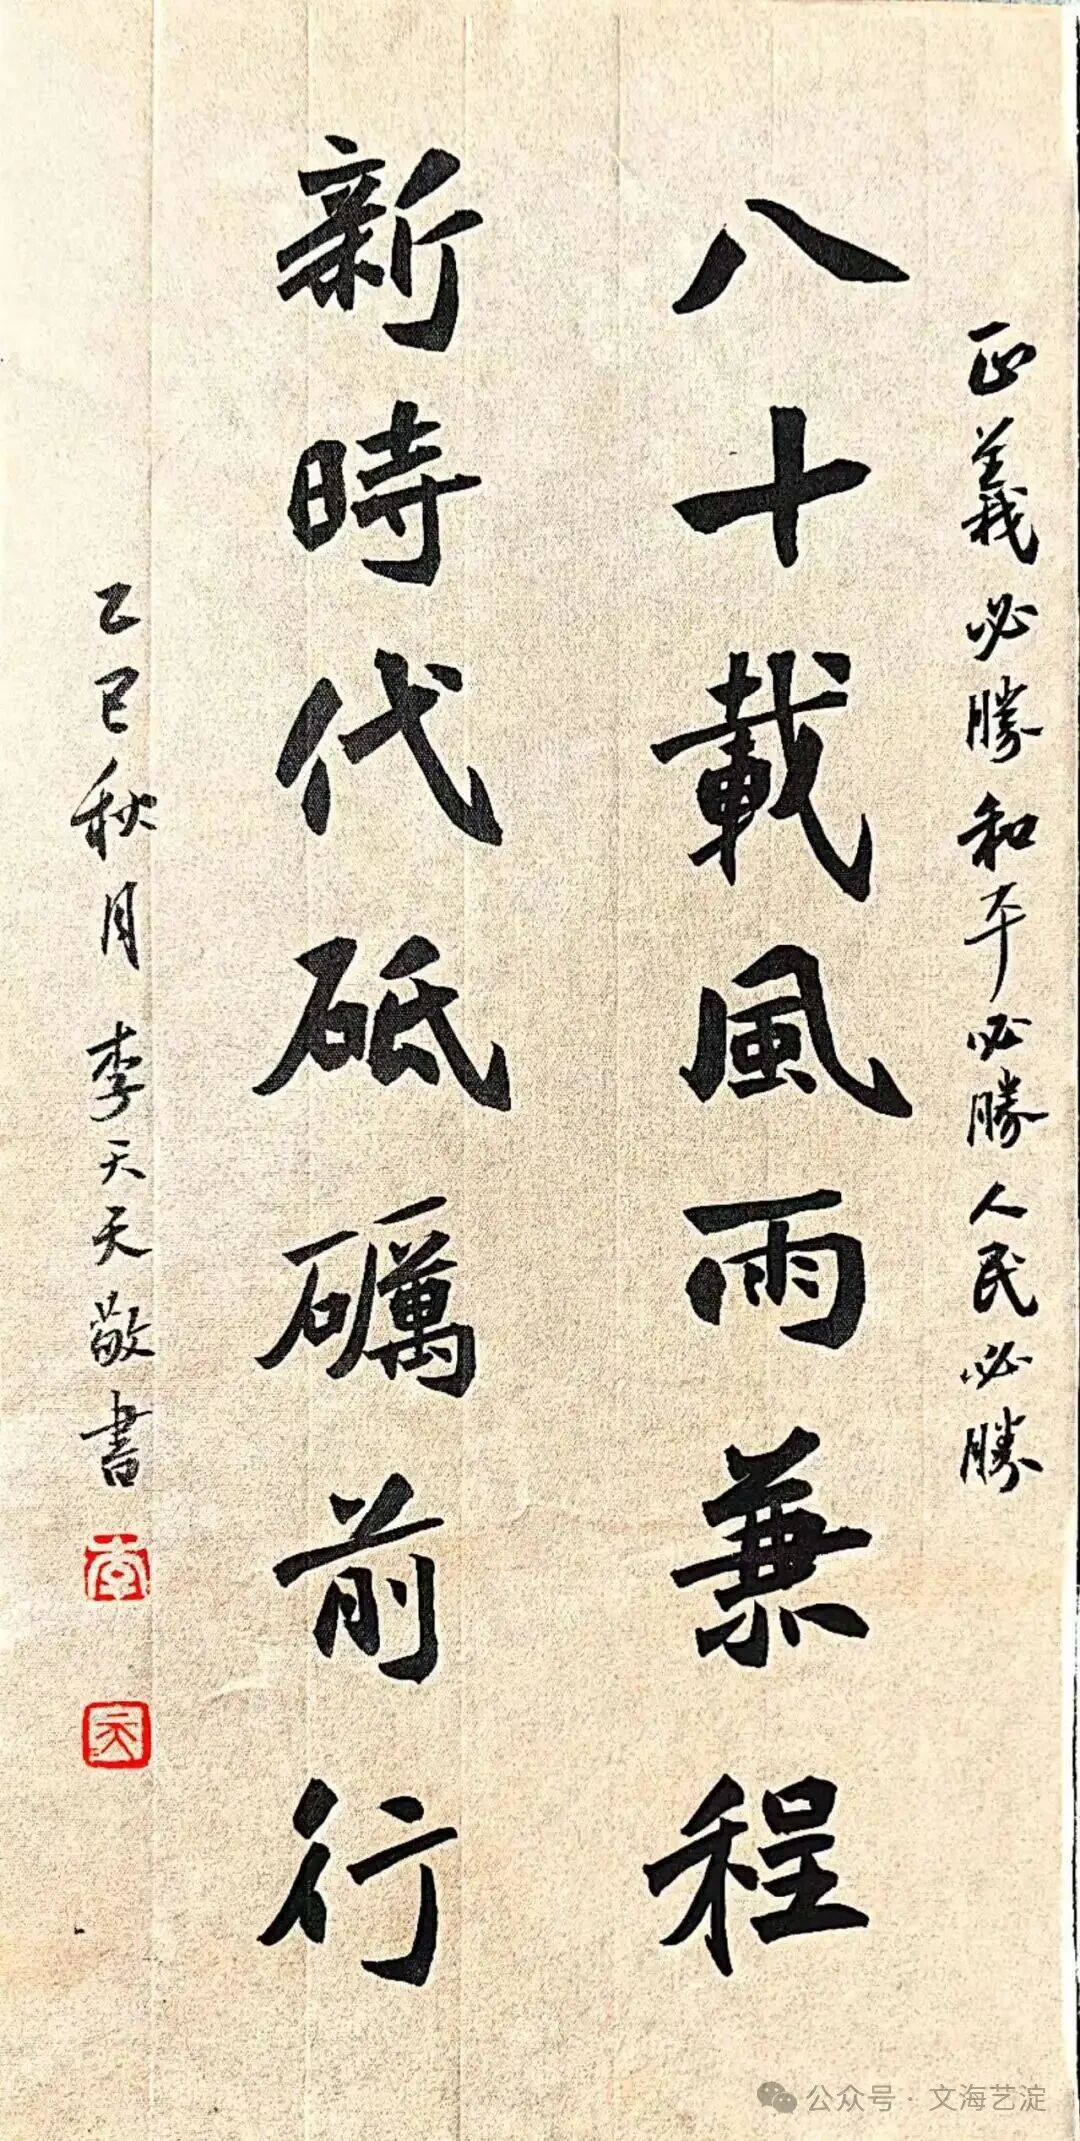 正義必勝和平必勝人民必勝
八十載風雨兼程
新時代砥礪前行
乙巳秋月 李天天敬書
李
天
公众号 · 文海艺淀